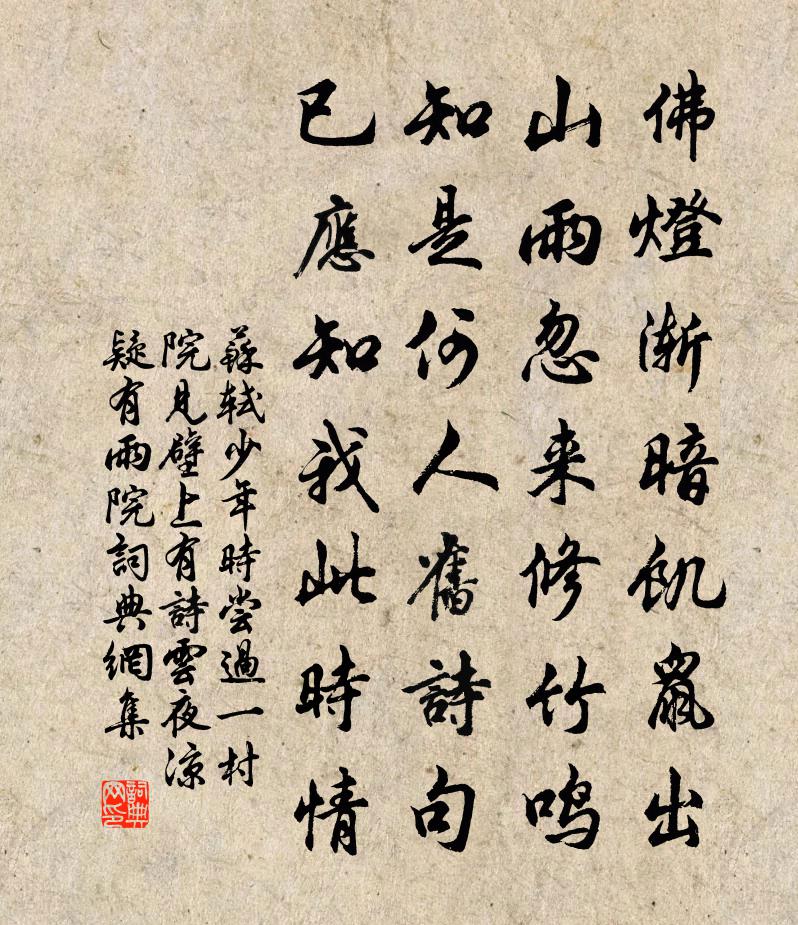 佛燈渐暗飢鼠出
山雨忽来修竹鳴
知是何人舊詩句
已應知我此時情
蘇軾少年時尝過一村
院見壁上有詩雲夜涼
疑有雨院詞典網集
詞典网印